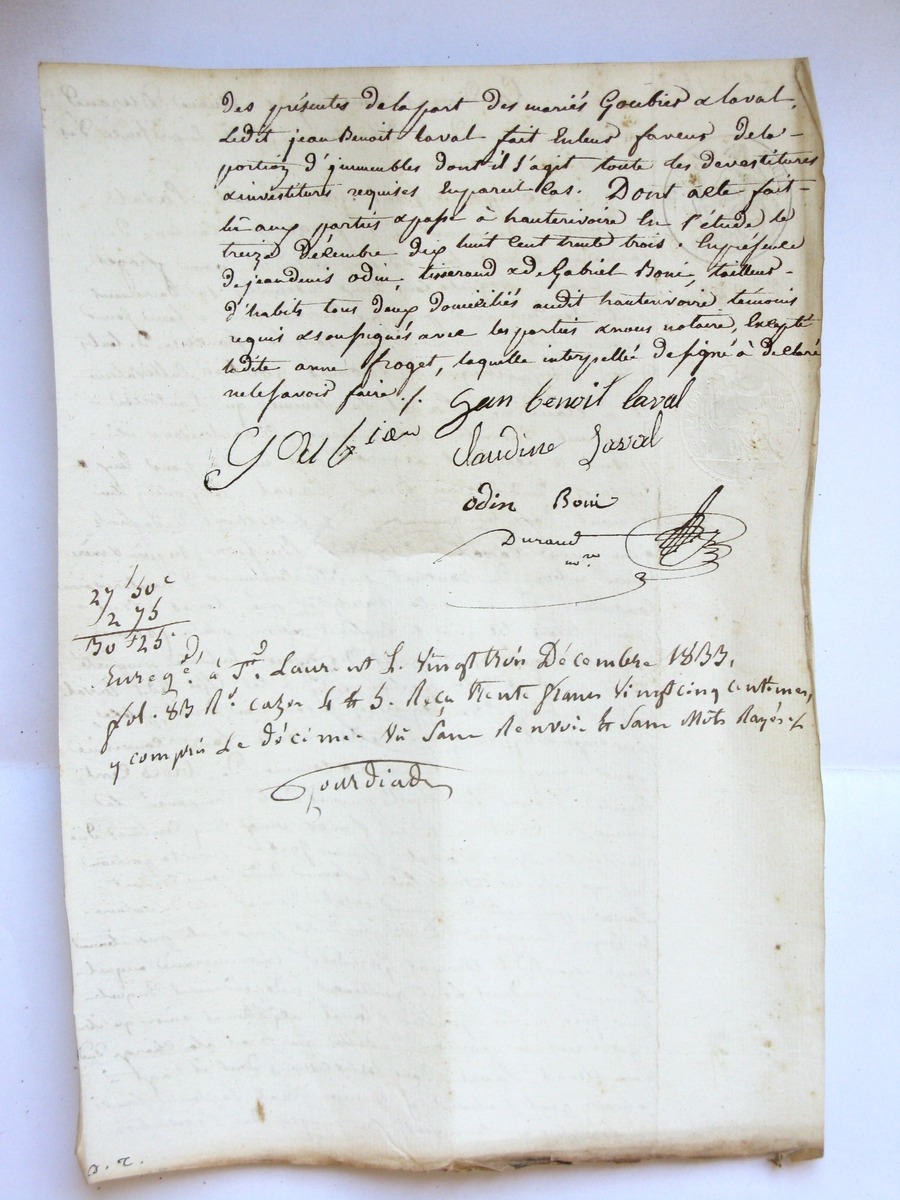 des présentes de la part des mariés Goubier & laval.
Ledit jean Benoit Laval fait En leur faveur de la-
portion d'jmmeubles dont il s'agit toute les devestitures
& investitures requises En pareil Cas. Dont acte fait-
lû aux parties & passé à hauterivoire En l'étude le
treize décembre dix huit cent trente trois. En présence
de jean denis odin, tisserand & de Gabriel Boni, tailleur-
d'habits tous deux domiciliés audit hauterivoire témoins
requis & soussignés avec les parties & nous notaire, Excepté
ladite anne froget, laquelle interpellée de signé à declaré
ne le savoir faire ./.
Jean benoit laval
Goub
Claudine Laval
odin Boni
Durand
nore
27 f 50 c
2 75
30 f 25.
Enregé. à St. Laurent L. Vingt trois Décembre 1833,
fol. 83 Ro. cazes 4 et 5. Reçu trente francs Vingt cinq centimes,
y compris Le décime. Vû Sans Renvoi et Sans Mots Rayés./.